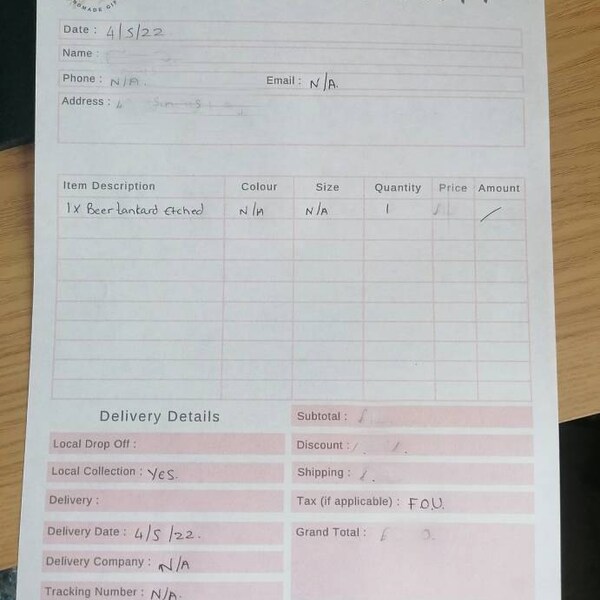 NDMADE GIF
Date : 4/5/22
Name :
Phone : N/A. Email : N/A.
Address :
Item Description Colour Size Quantity Price Amount
1x Beer tankard Etched N/A N/A 1
Delivery Details
Subtotal :
Local Drop Off : Discount :
Local Collection : Yes. Shipping :
Delivery : Tax (if applicable) : F.O.U.
Delivery Date : 4/5/22. Grand Total :
Delivery Company : N/A
Tracking Number : N/A.